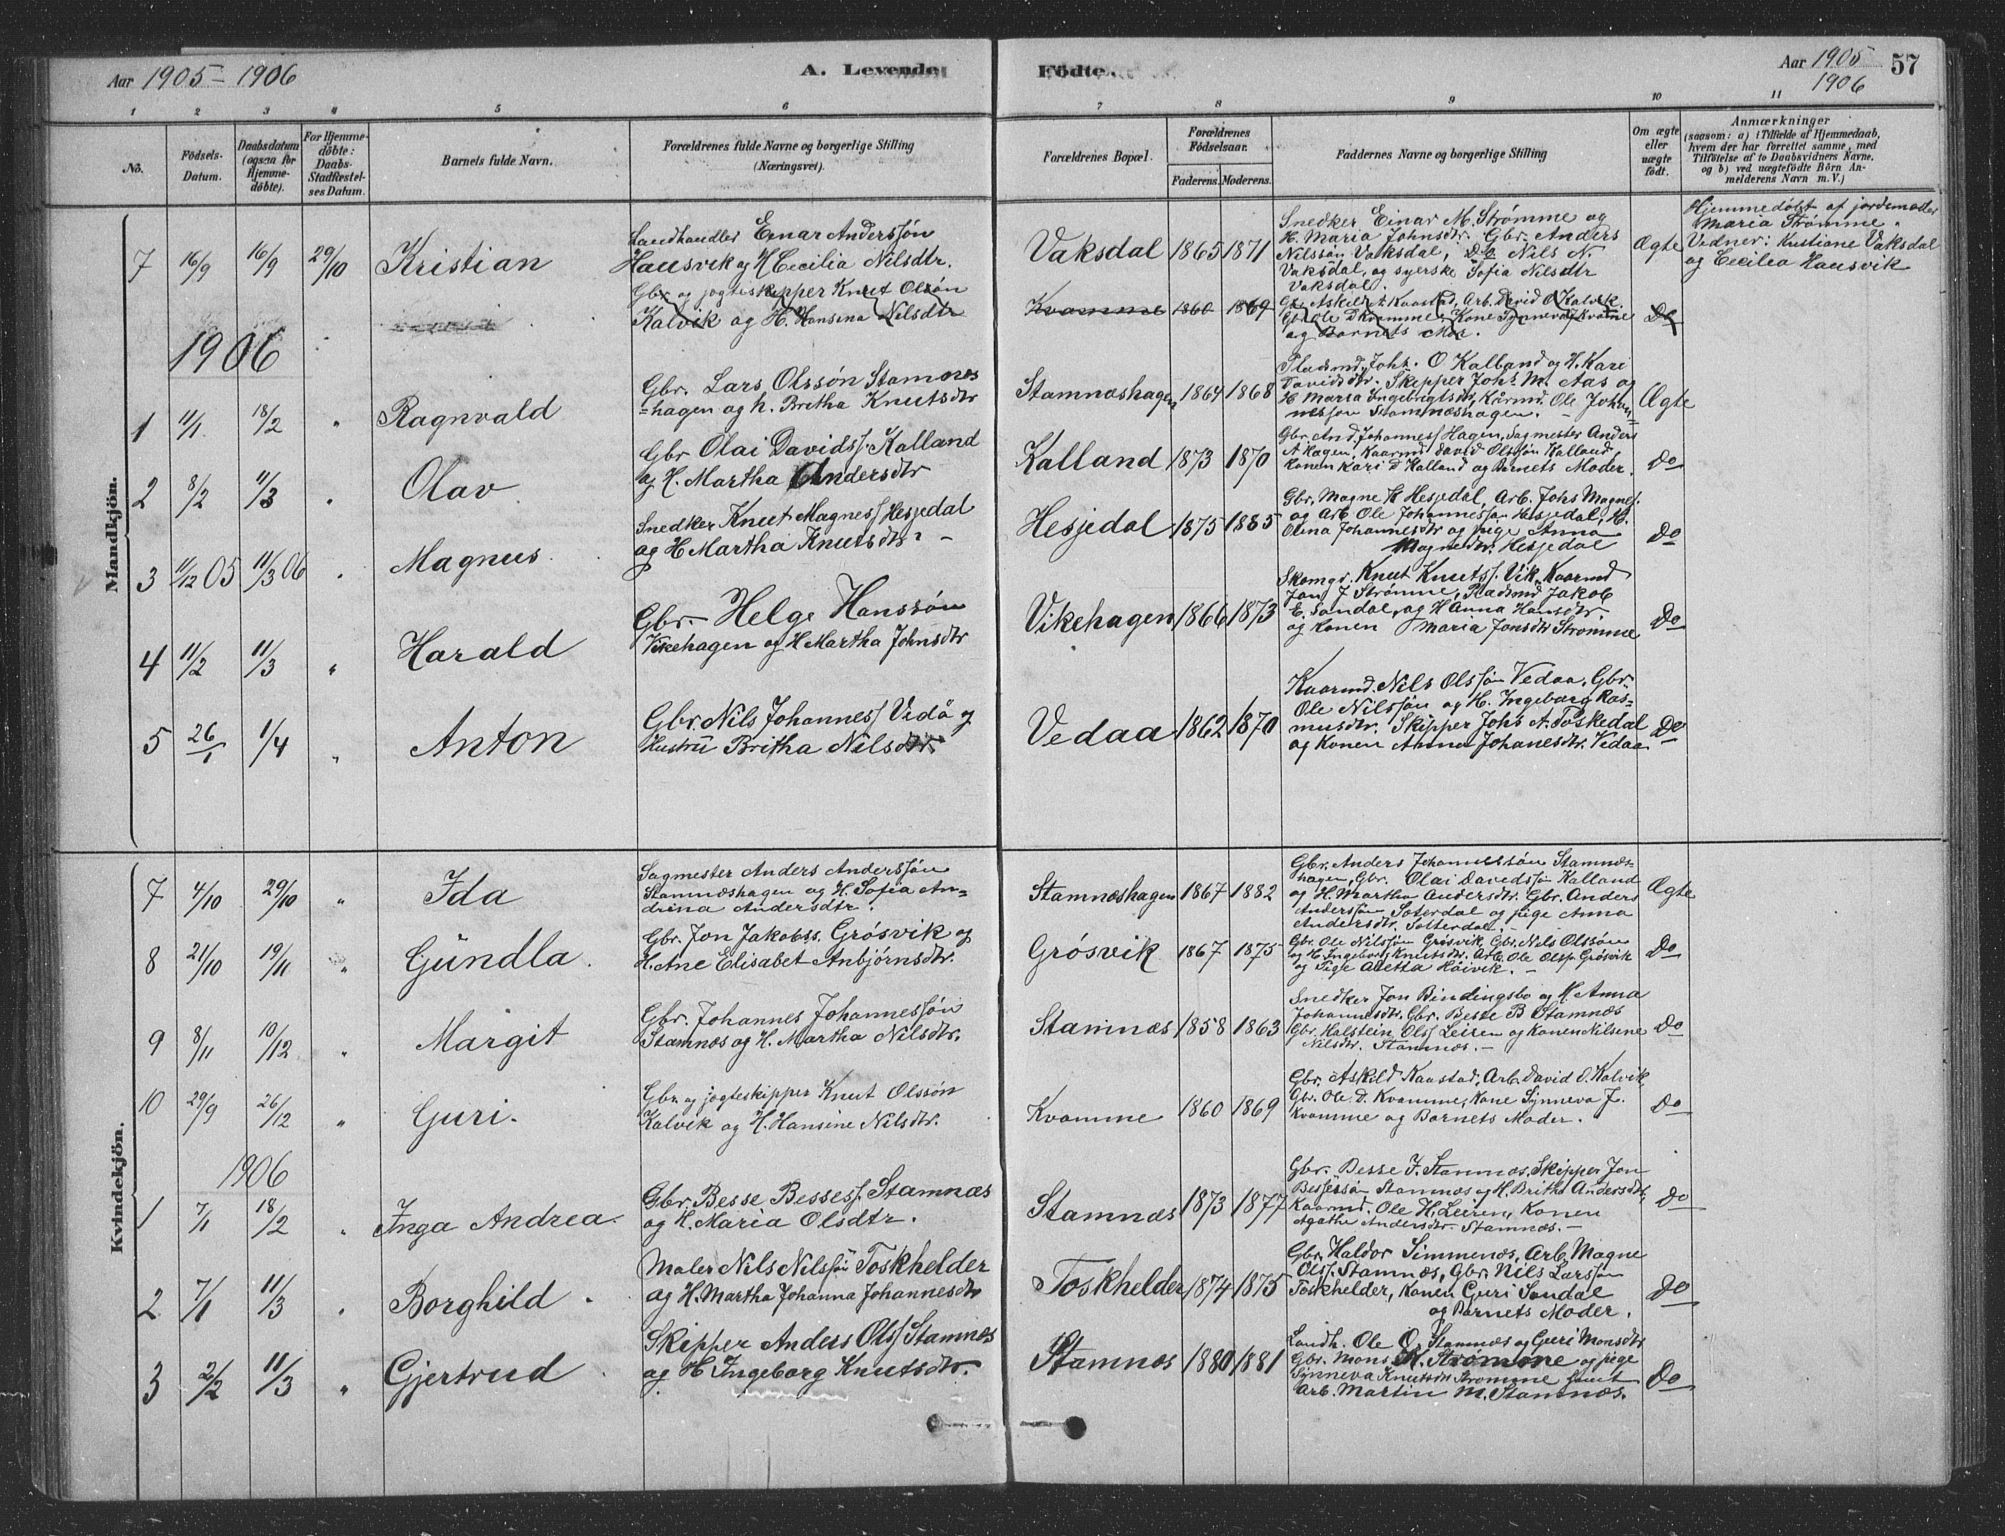 Aar 1905 - 1906
A. Levende
Födte.
Aar 1905
1906
57
1 2 3 4 5 6 7 8 9 10 11
No.
Födsels-
Datum.
Daabsdatum
(ogsaa for
Hjemme-
döbte).
For Hjemme-
döbte:
Daabs-
Stadfæstel-
ses Datum.
Barnets fulde Navn.
Forældrenes fulde Navne og borgerlige Stilling
(Næringsvei).
Forældrenes Bopæl.
Forældrenes
Födselsaar.
Faderens. Moderens.
Faddernes Navne og borgerlige Stilling
Om ægte
eller
uægte
födt.
Anmærkninger
(saasom: a) i Tilfælde af Hjemmedaab,
hvem der har forrettet samme, med
Tilföielse af to Daabsvidners Navne,
og b) ved uægtefödte Börn An-
melderens Navn m. V.)
Mandkjön.
7 16/9 16/9 29/10 Kristian
Landhandler Einar Anderssøn
Hausvik og H Cecilia Nilsdtr.
Vaksdal 1865 1871
Snedker Einar M. Strømme og
H. Maria Johnsdtr. Gbr. Anders
Nilssøn Vaksdal, Do Nils N.
Vaksdal, og syerske Sofia Nilsdtr
Vaksdal.
Ægte
Hjemmedøbt af jordemoder
Maria Strømme.
Vidner: Kristiane Vaksdal
og Cecilia Hausvik
Gbr og jægteskipper Knut Olsøn
Kalvik og H. Hansina Nilsdtr
Kvamme 1860 1869
Gbr Askild Kaastad, Arb. David O Kalvik,
Gbr Ole D Kvamme, Kone Synneva J Kvamme
og Barnets Mor.
Do
1906
1 11/1 18/2 " Ragnvald
Gbr. Lars Olssøn Stamnæs
=hagen og h. Britha Knutsdtr
Stamnæshagen 1864 1868
Pladsmd. Johs. O Kalland og H. Kari
Davidsdtr. Skipper Johs M. Aas og
H Maria Ingebrigtsdtr, Kårmd. Ole Johan=
nessøn Stamnæshagen.
Ægte
2 8/2 11/3 " Olav
Gbr Olai Davids/. Kalland
og H. Martha Andersdtr
Kalland 1873 1870
Gbr And. Johannes/ Hagen, Sagmester Anders
A Hagen, Kaarmd David Olssøn Kalland,
Konen Kari D Kalland og Barnets Moder.
Do
3 11/12 05 11/3 06 " Magnus.
Snedker Knut Magnes/ Hesjedal
og H Martha Knutsdtr. -
Hesjedal 1875 1885
Gbr. Magne K Hesjedal, Arb. Johs Magnes.
og Arb Ole Johannessøn Hesjedal, H.
Olina Johannesdtr og pige Anna
Magnedtr. Hesjedal
Do
4 11/2 11/3 " Harald
Gbr. Helge Hanssøn
Vikehagen og H Martha Johnsdtr
Vikehagen 1866 1873
Skomgr. Knut Knuts/. Vik, Kaarmd
Jon J Strømme, Pladsmd Jakob
E. Sandal, og H Anna Hansdtr.
og Konen Maria Jonsdtr Strømme
Do
5 26/1 1/4 " Anton
Gbr. Nils Johannes/ Vedå og
Hustru Britha Nilsdtr.
Vedaa 1862 1870
Kaarmd. Nils Olssøn Vedaa, Gbr.
Ole Nilssøn og H. Ingeborg Ras=
musdtr. Skipper Johs A. Toskedal
og Konen Anna Johanesdtr. Vedaa
Do
Kvindekjön.
7 4/10 29/10 " Ida
Sagmester Anders Anderssøn
Stamnæshagen og H. Sofia An=
drina Andersdtr.
Stamnæshagen 1867 1882
Gbr. Anders Johannessøn Stamnæs=
hagen, Gbr. Olai Davidsøn Kalland
og H. Martha Andersdtr. Gbr. Anders
Anderssøn Soterdal og pige Anna
Andersdtr. Solterdal. -
Ægte
8 21/10 19/11 " Gundla.
Gbr. Jon Jakobss. Gròsvik og
H. Ane Elisabet Anbjørnsdtr.
Gròsvik 1867 1875
Gbr. Ole Nilssøn Gròsvik, Gbr. Nils Olssøn
og H. Ingeborg Knutsdtr. Arb. Ole Olsp. Gròsvik
og Pige Aletta Høivik. -
Do
9 8/11 10/12 " Margit
Gbr. Johannes Johannessøn
Stamnæs og H. Martha Nilsdtr.
Stamnæs 1858 1863
Snedker Jon Bindingsbo og H. Anna
Johannesdtr. Gbr. Besse B Stamnæs
Gbr. Halstein Ols/ Leiren og Konen Nilsine
Nilsdtr. Stamnæs. -
Do
10 29/9 26/12 " Guri.
Gbr. og jægteskipper Knut Olssøn
Kalvik og H. Hansine Nilsdtr.
Kvamme 1860 1869
Gbr. Askild Kaastad, Arb. David O. Kalvik,
Gbr. Ole D. Kvamme, Kone Synneva J.
Kvamme og Barnets Moder.
Do
1906
1 7/1 18/2 " Inga Andrea.
Gbr. Besse Besses/. Stamnæs
og H. Maria Olsdtr.
Stamnæs 1873 1877
Gbr. Besse J. Stamnæs, Skipper Jon
Bessesøn Stamnæs og H. Britha Andersdtr,
Kaarmd. Ole H. Leiren, Konen
Agathe Andersdtr. Stamnæs. -
Do
2 7/1 11/3 " Borghild.
Maler Nils Nilssøn Toskhelder
og H. Martha Johanna Johannesdtr
Toskhelder 1874 1875
Gbr. Haldor Simmenæs, Arb. Magne
Ols/. Stamnæs, Gbr. Nils Larssøn
Toskhelder, Konen Guri Sandal
og Barnets Moder.
Do
3 2/2 11/3 " Gjertrud
Skipper Anders Ols/ Stamnæs
og H Ingeborg Knutsdtr.
Stamnæs 1880 1881
Landh. Ole O. Stamnæs og Guri Monsdtr
Gbr. Mons K. Strømme og pige
Synneva Knutsdtr Strømme samt
Arb. Martin M. Stamnæs.
Do